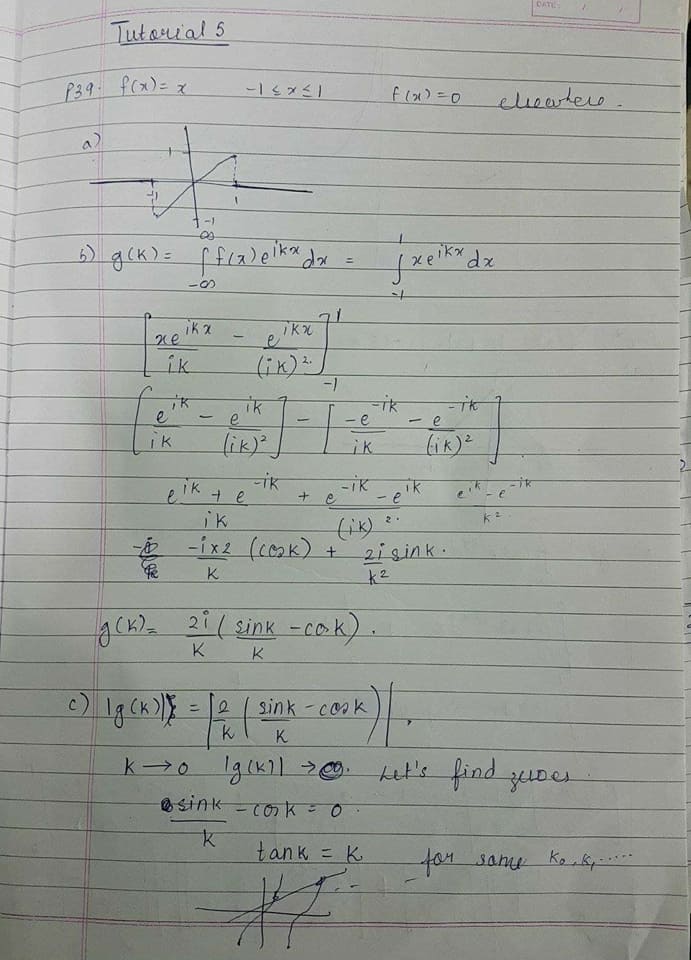 DATE: / /
Tutorial 5
P39. f(x) = x -1 ≤ x ≤ 1 f(x) = 0 elsewhere.
a)
1
-1 1
-1
b) g(k) = ∫_{-∞}^{∞} f(x) e^{ikx} dx = ∫_{-1}^{1} x e^{ikx} dx
[ xe^{ikx}/ik - e^{ikx}/(ik)^2 ]_{-1}^{1}
[ e^{ik}/ik - e^{ik}/(ik)^2 ] - [ -e^{-ik}/ik - e^{-ik}/(ik)^2 ]
(e^{ik} + e^{-ik})/ik + (e^{-ik} - e^{ik})/(ik)^2 (e^{ik} - e^{-ik})/k^2
-i×2/k (cosk) + 2i/k^2 sink.
g(k) = 2i/k ( sink/k - cosk ).
c) |g(k)| = | 2/k ( sink/k - cosk ) |.
k → 0 |g(k)| → Let's find zeroes.
sink/k - cosk = 0.
tank = k for some k₀, k₁, .....